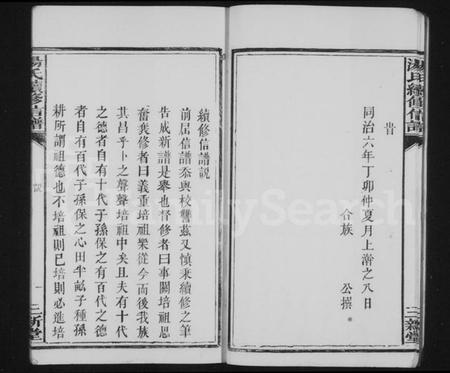 湯氏續修信譜
旹
同治六年丁卯仲夏月上澣之八日
合族 公撰
三新堂
FamilySearch
續修信譜説
前屆信譜忝與校讐茲又慎秉續修之筆
告成新譜是舉也督修者曰事關培祖思
奮袂修者曰義重培祖樂從今而後我族
其昌乎卜之聲聲培祖中矣且夫有十代
之德者自有十代子孫保之有百代之德
者自有百代子孫保之心田半畝子種孫
耕所謂祖德也不培祖則已培則必進培
湯氏續修信譜
説
一
三新堂